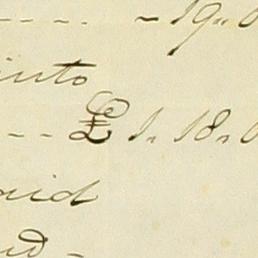 - - - - 19 " 0
into
- - - £ 1 " 18 " 0
aid